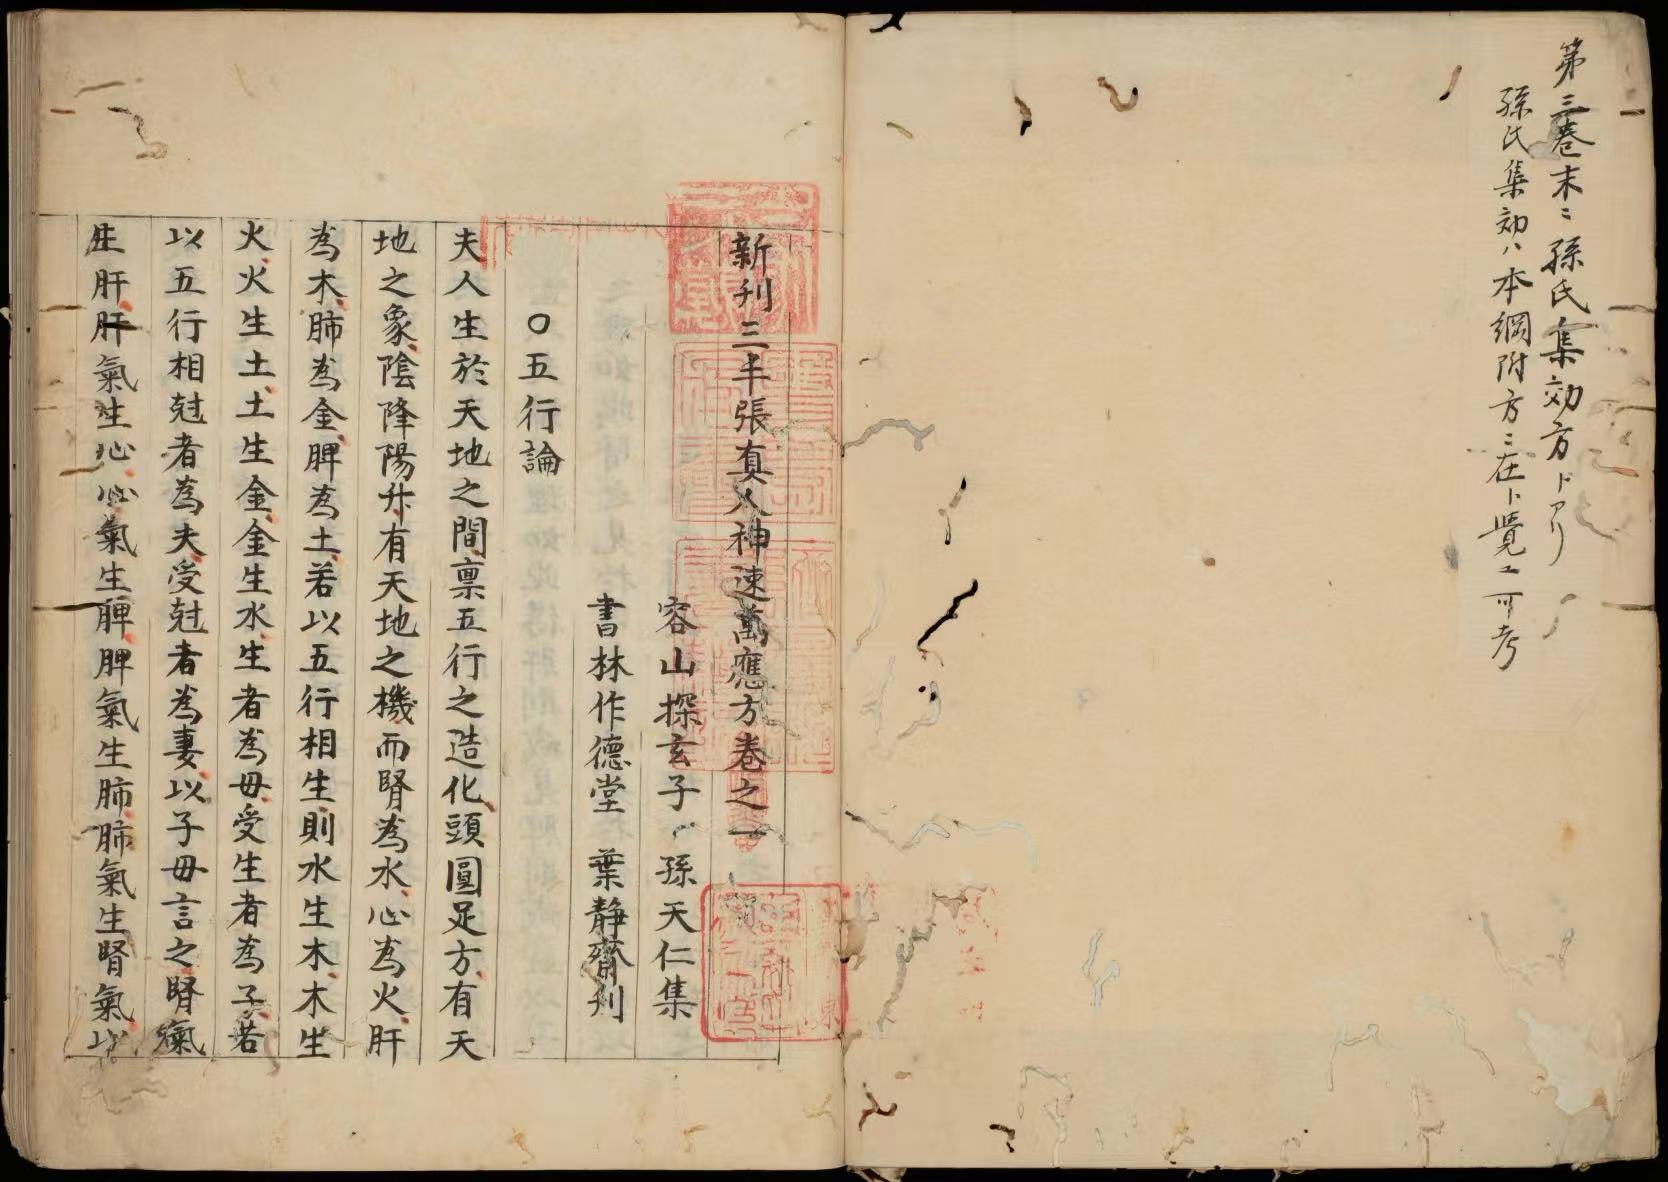 第三巻末ニ孫氏集効方トアリ
孫氏集効ハ本綱附方ニ在ト覺ユ可考
新刋三丰張真人神速萬應方卷之一
容山探玄子孫天仁集
書林作德堂 葉靜齋刋
○五行論
夫人生於天地之間禀五行之造化頭圓足方有天
地之象陰降陽升有天地之機而腎為水心為火肝
為木肺為金脾為土若以五行相生則水生木木生
火火生土土生金金生水生者為母受生者為子若
以五行相尅者為夫受尅者為妻以子母言之腎氣
生肝肝氣生心心氣生脾脾氣生肺肺氣生腎氣